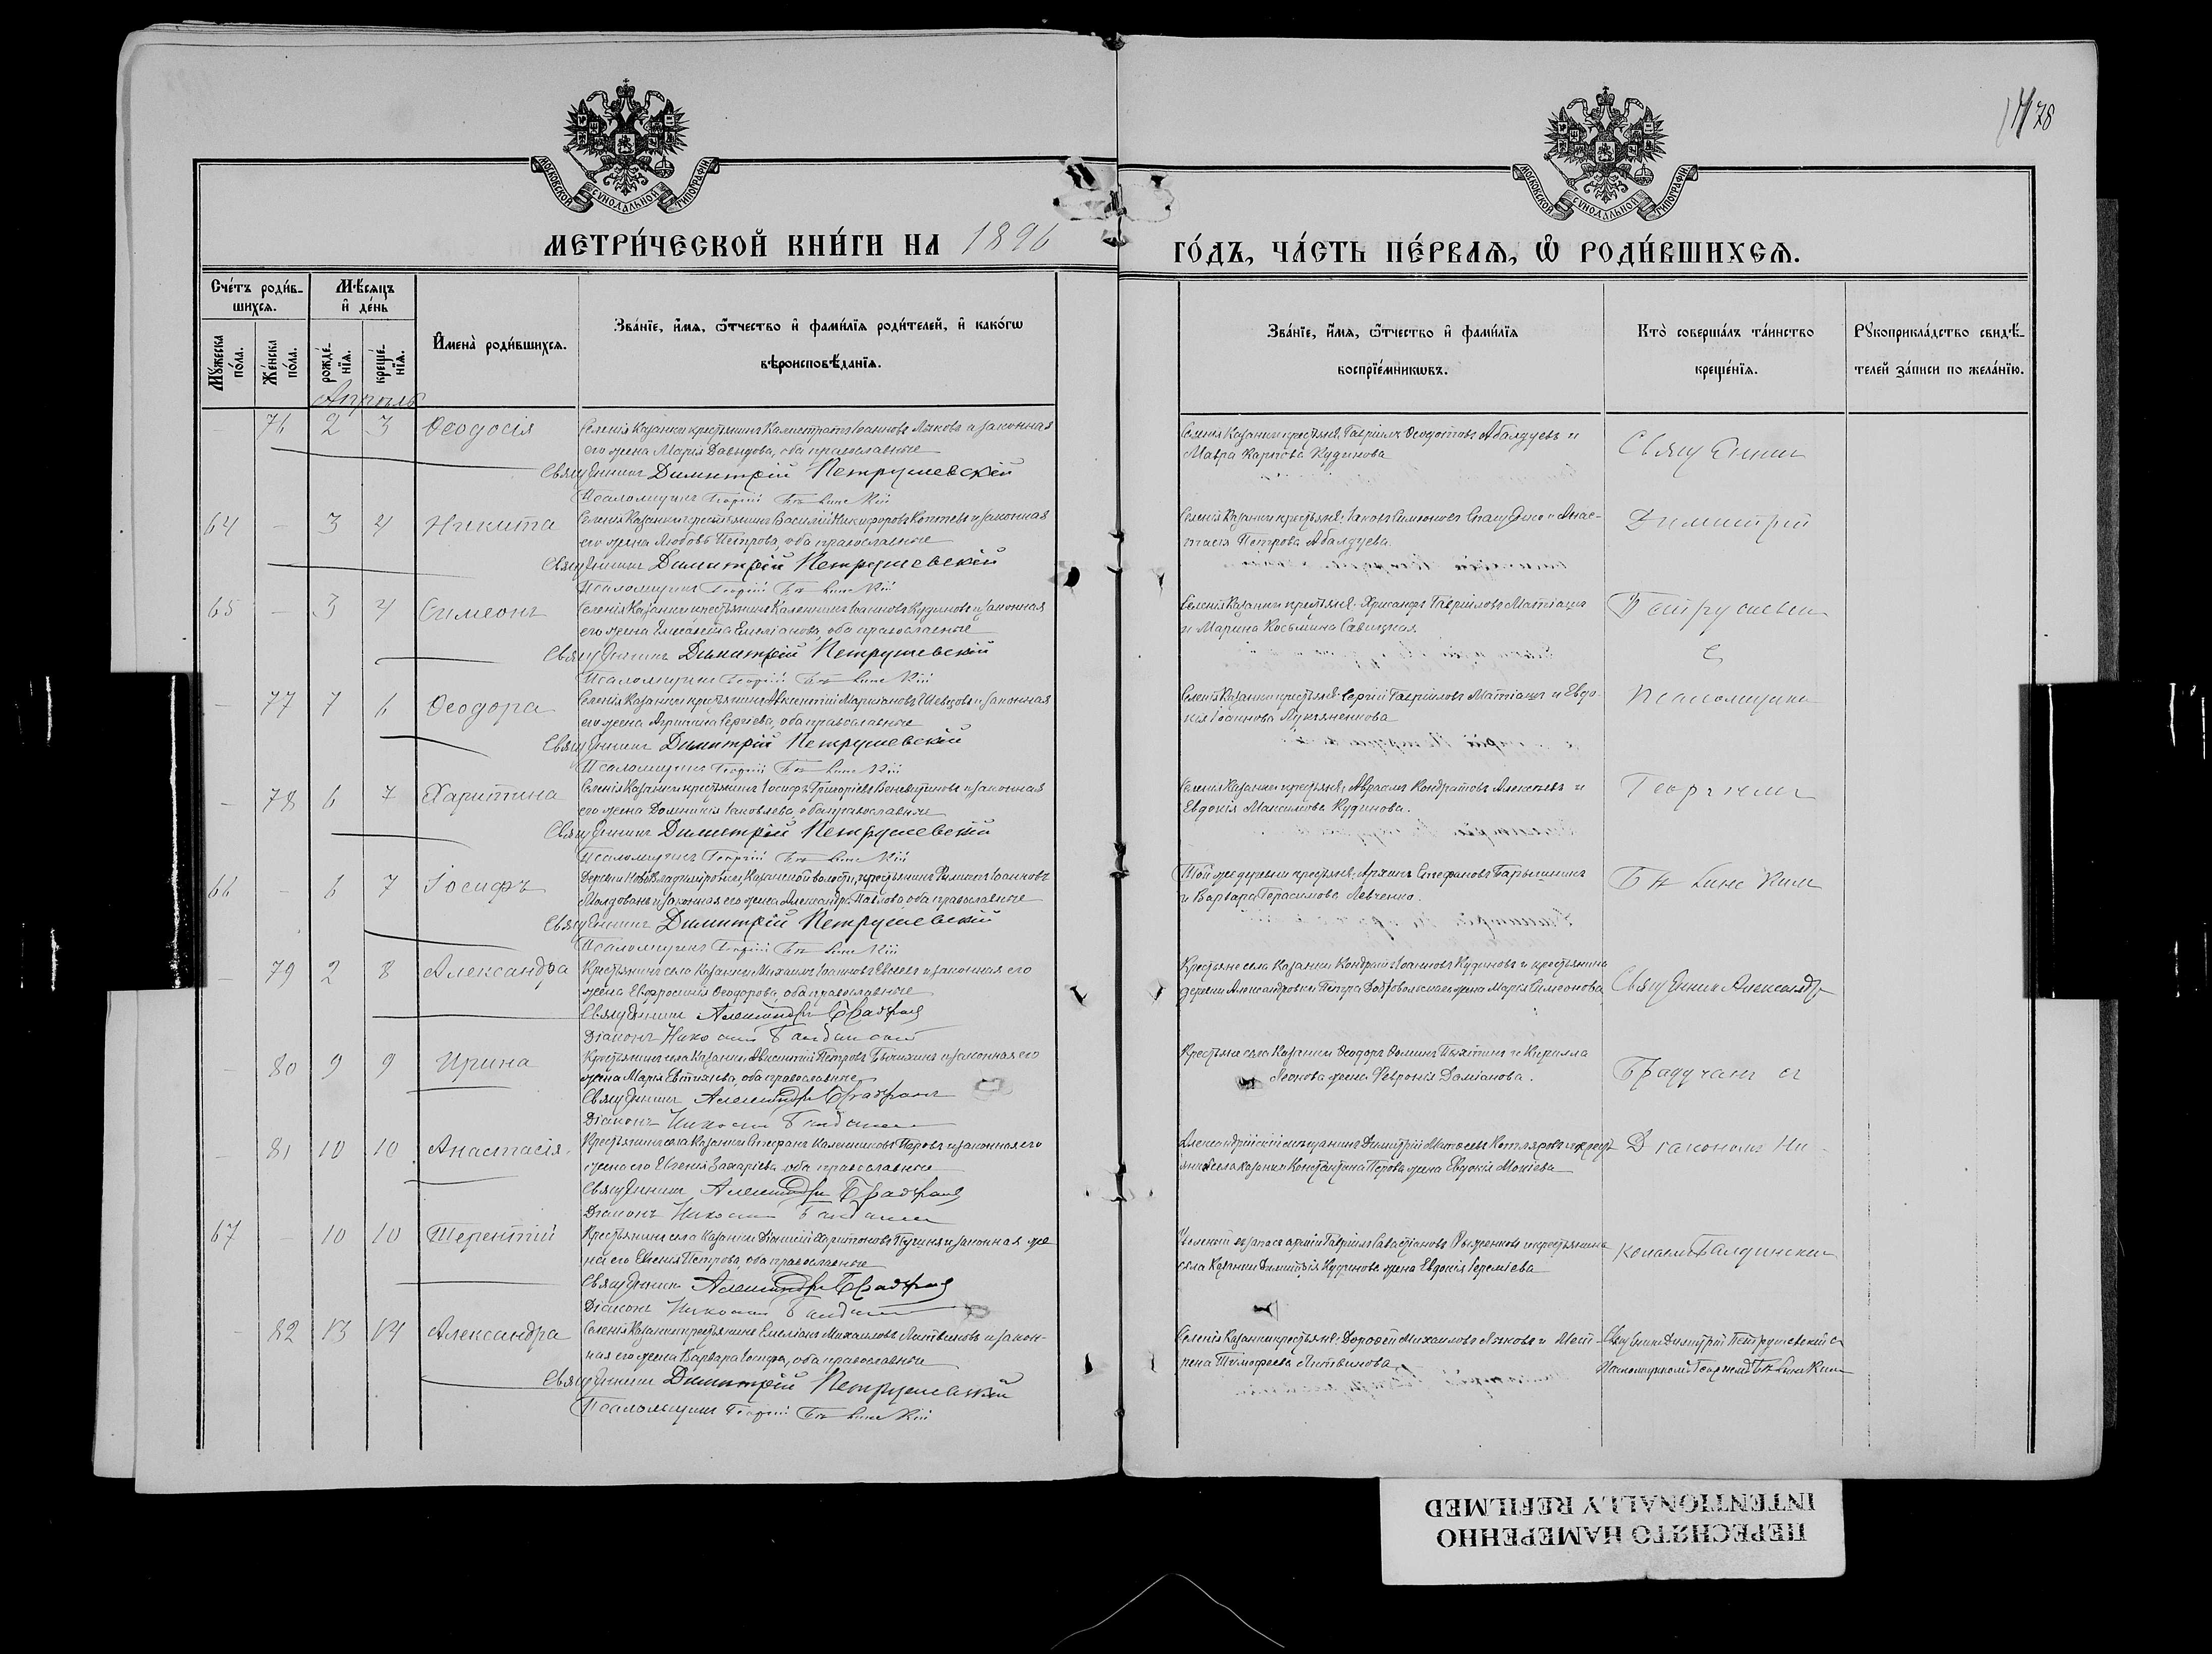 178
МОСКОВСКОЙ СѴНОДАЛЬНОЙ ТИПОГРАФІИ
МОСКОВСКОЙ СѴНОДАЛЬНОЙ ТИПОГРАФІИ
МЕТРИ́ЧЕСКОЙ КНИ́ГИ НА 1896 ГО́ДЪ, ЧА́СТЬ ПЕ́РВАѦ, Ѡ҆ РОДИ́ВШИХСѦ.
Сче́тъ роди́в-
шихсѧ.
Мꙋ́жеска
по́ла.
Же́нска
по́ла.
Мѣ́сѧцъ
и҆ де́нь
рожде́-
нїѧ.
креще́-
нїѧ.
И҆мена̀ роди́вшихсѧ.
Зва́нїе, и҆́мѧ, ѻ҆́тчество и҆ фами́лїѧ роди́телей, и҆ како́гѡ
вѣроисповѣ́данїѧ.
Зва́нїе, и҆́мѧ, ѻ҆́тчество и҆ фами́лїѧ
воспрїе́мникѡвъ.
Кто̀ соверша́лъ та́инство
креще́нїѧ.
Рꙋкоприкла́дство свидѣ́-
телей за́писи по жела́нїю.
Апрѣль
- 76 2 3 Ѳеодосія
Селенія Казанки крестьянинъ Калистратъ Іоанновъ Ляховъ и законная
его жена Марія Давыдова, оба православные
Священникъ Димитрій Петрушевскій
Псаломщикъ Георгій
Селенія Казанки крестьяне: Гавріилъ Ѳеодотовъ Абалдуевъ и
Мавра Карпова Кудинова
Священник
64 - 3 4 Никита
Селенія Казанки крестьянинъ Василій Никифоровъ Коптевъ и законная
его жена Любовь Петрова, оба православные
Священникъ Димитрій Петрушевскій
Псаломщикъ Георгій
Селенія Казанки крестьяне: Іаковъ Симеоновъ и Анас-
тасія Петрова Абалдуева
Димитрій
65 - 3 4 Симеонъ
Селенія Казанки крестьянинъ Калинникъ Іоанновъ Кудиновъ и законная
его жена Емиліанова, оба православные
Священникъ Димитрій Петрушевскій
Псаломщикъ Георгій
Селенія Казанки крестьяне: Хрисанфъ Гавріиловъ Матіашъ
и Марина Косьмина Савицкая
Петрушевски
с
- 77 7 6 Ѳеодора
Селенія Казанки крестьянинъ Авксентій Шевцовъ и законная
его жена Агрипина Сергіева, оба православные
Священникъ Димитрій Петрушевскій
Псаломщикъ Георгій
Селенія Казанки крестьяне: Сергій Гавріиловъ Матіашъ и Евдо-
кія Іоаннова Лукьяненкова
Псаломщико
- 78 6 7 Харитина
Селенія Казанки крестьянинъ Іосифъ Григоріевъ и законная
его жена Домникія Іаковлева, оба православные
Священникъ Димитрій Петрушевскій
Псаломщикъ Георгій
Селенія Казанки крестьяне: Авраамъ Кондратовъ Алексѣевъ и
Евдокія Максимова Кудинова.
Георгіемъ
66 - 6 7 Іосифъ
Деревни Казанской волости, крестьянинъ Филиппъ Іоанновъ
Молдованъ и законная его жена Александра Павлова, оба православные
Священникъ Димитрій Петрушевскій
Псаломщикъ Георгій
Той же деревни крестьяне: Архипъ Стефановъ Барышникъ
и Варвара Герасимова Левченко.
- 79 2 8 Александра
Крестьянинъ села Казанки Михаилъ Іоанновъ и законная его
жена Евфросинія Ѳеодорова, оба православные
Священникъ Александръ
Діаконъ
Крестьяне села Казанки Кондратъ Іоанновъ Кудиновъ и крестьянина
деревни Александровки Петра Добровольскаго жена Марія Симеонова
Священник Александр
- 80 9 9 Ирина
Крестьянинъ села Казанки, Авксентій Петровъ и законная его
жена Марія Евтихіева, оба православные
Священникъ Александръ
Діаконъ
Крестьяне села Казанки Ѳеодоръ Ѳоминъ и Кирилла
Леонова жена Февронія Даміанова.
Брадучанъ съ
- 81 10 10 Анастасія
Крестьянинъ села Казанки Стефанъ Калинниковъ Перовъ и законная его
жена его Евгенія Захаріева, оба православные
Священникъ Александръ
Діаконъ
Александрійскій мѣщанинъ Димитрій Матѳеевъ Котляровъ и крест-
янина села Казанки Константина Перова жена Евдокія Моисіева
Діакономъ Ни-
67 - 10 10 Терентій
Крестьянинъ села Казанки Діонисій Харитоновъ и законная же-
на его Евгенія Петрова, оба православные
Священникъ Александръ
Діаконъ
Уволенный въ запасъ арміи Гавріилъ Савастіановъ и крестьянина
села Казанки Димитрія Кудинова жена Евдокія Іереміева
колаемъ
- 82 13 14 Александра
Селенія Казанки крестьянинъ Емеліанъ Михаиловъ Литвиновъ и закон-
ная его жена Варвара Іосифа, оба православные
Священникъ Димитрій Петрушевскій
Псаломщикъ Георгій
Селенія Казанки крестьяне: Дороѳей Михаиловъ Ляховъ и Мат-
рона Тимофеева Литвинова
Священник Димитрій Петрушевскій съ
Псаломщикомъ Георгіемъ
ПЕРЕСНЯТО НАМЕРЕННО
INTENTIONALLY REFILMED